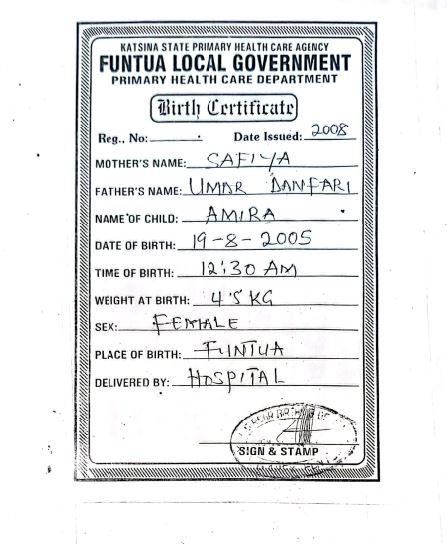 KATSINA STATE PRIMARY HEALTH CARE AGENCY
FUNTUA LOCAL GOVERNMENT
PRIMARY HEALTH CARE DEPARTMENT
Birth Certificate
Reg., No: Date Issued: 2008
MOTHER'S NAME: SAFIYA
FATHER'S NAME: UMAR DANFARI
NAME OF CHILD: AMIRA
DATE OF BIRTH: 19-8-2005
TIME OF BIRTH: 12:30 AM
WEIGHT AT BIRTH: 4.5 KG
SEX: FEMALE
PLACE OF BIRTH: FUNTUA
DELIVERED BY: HOSPITAL
SIGN & STAMP